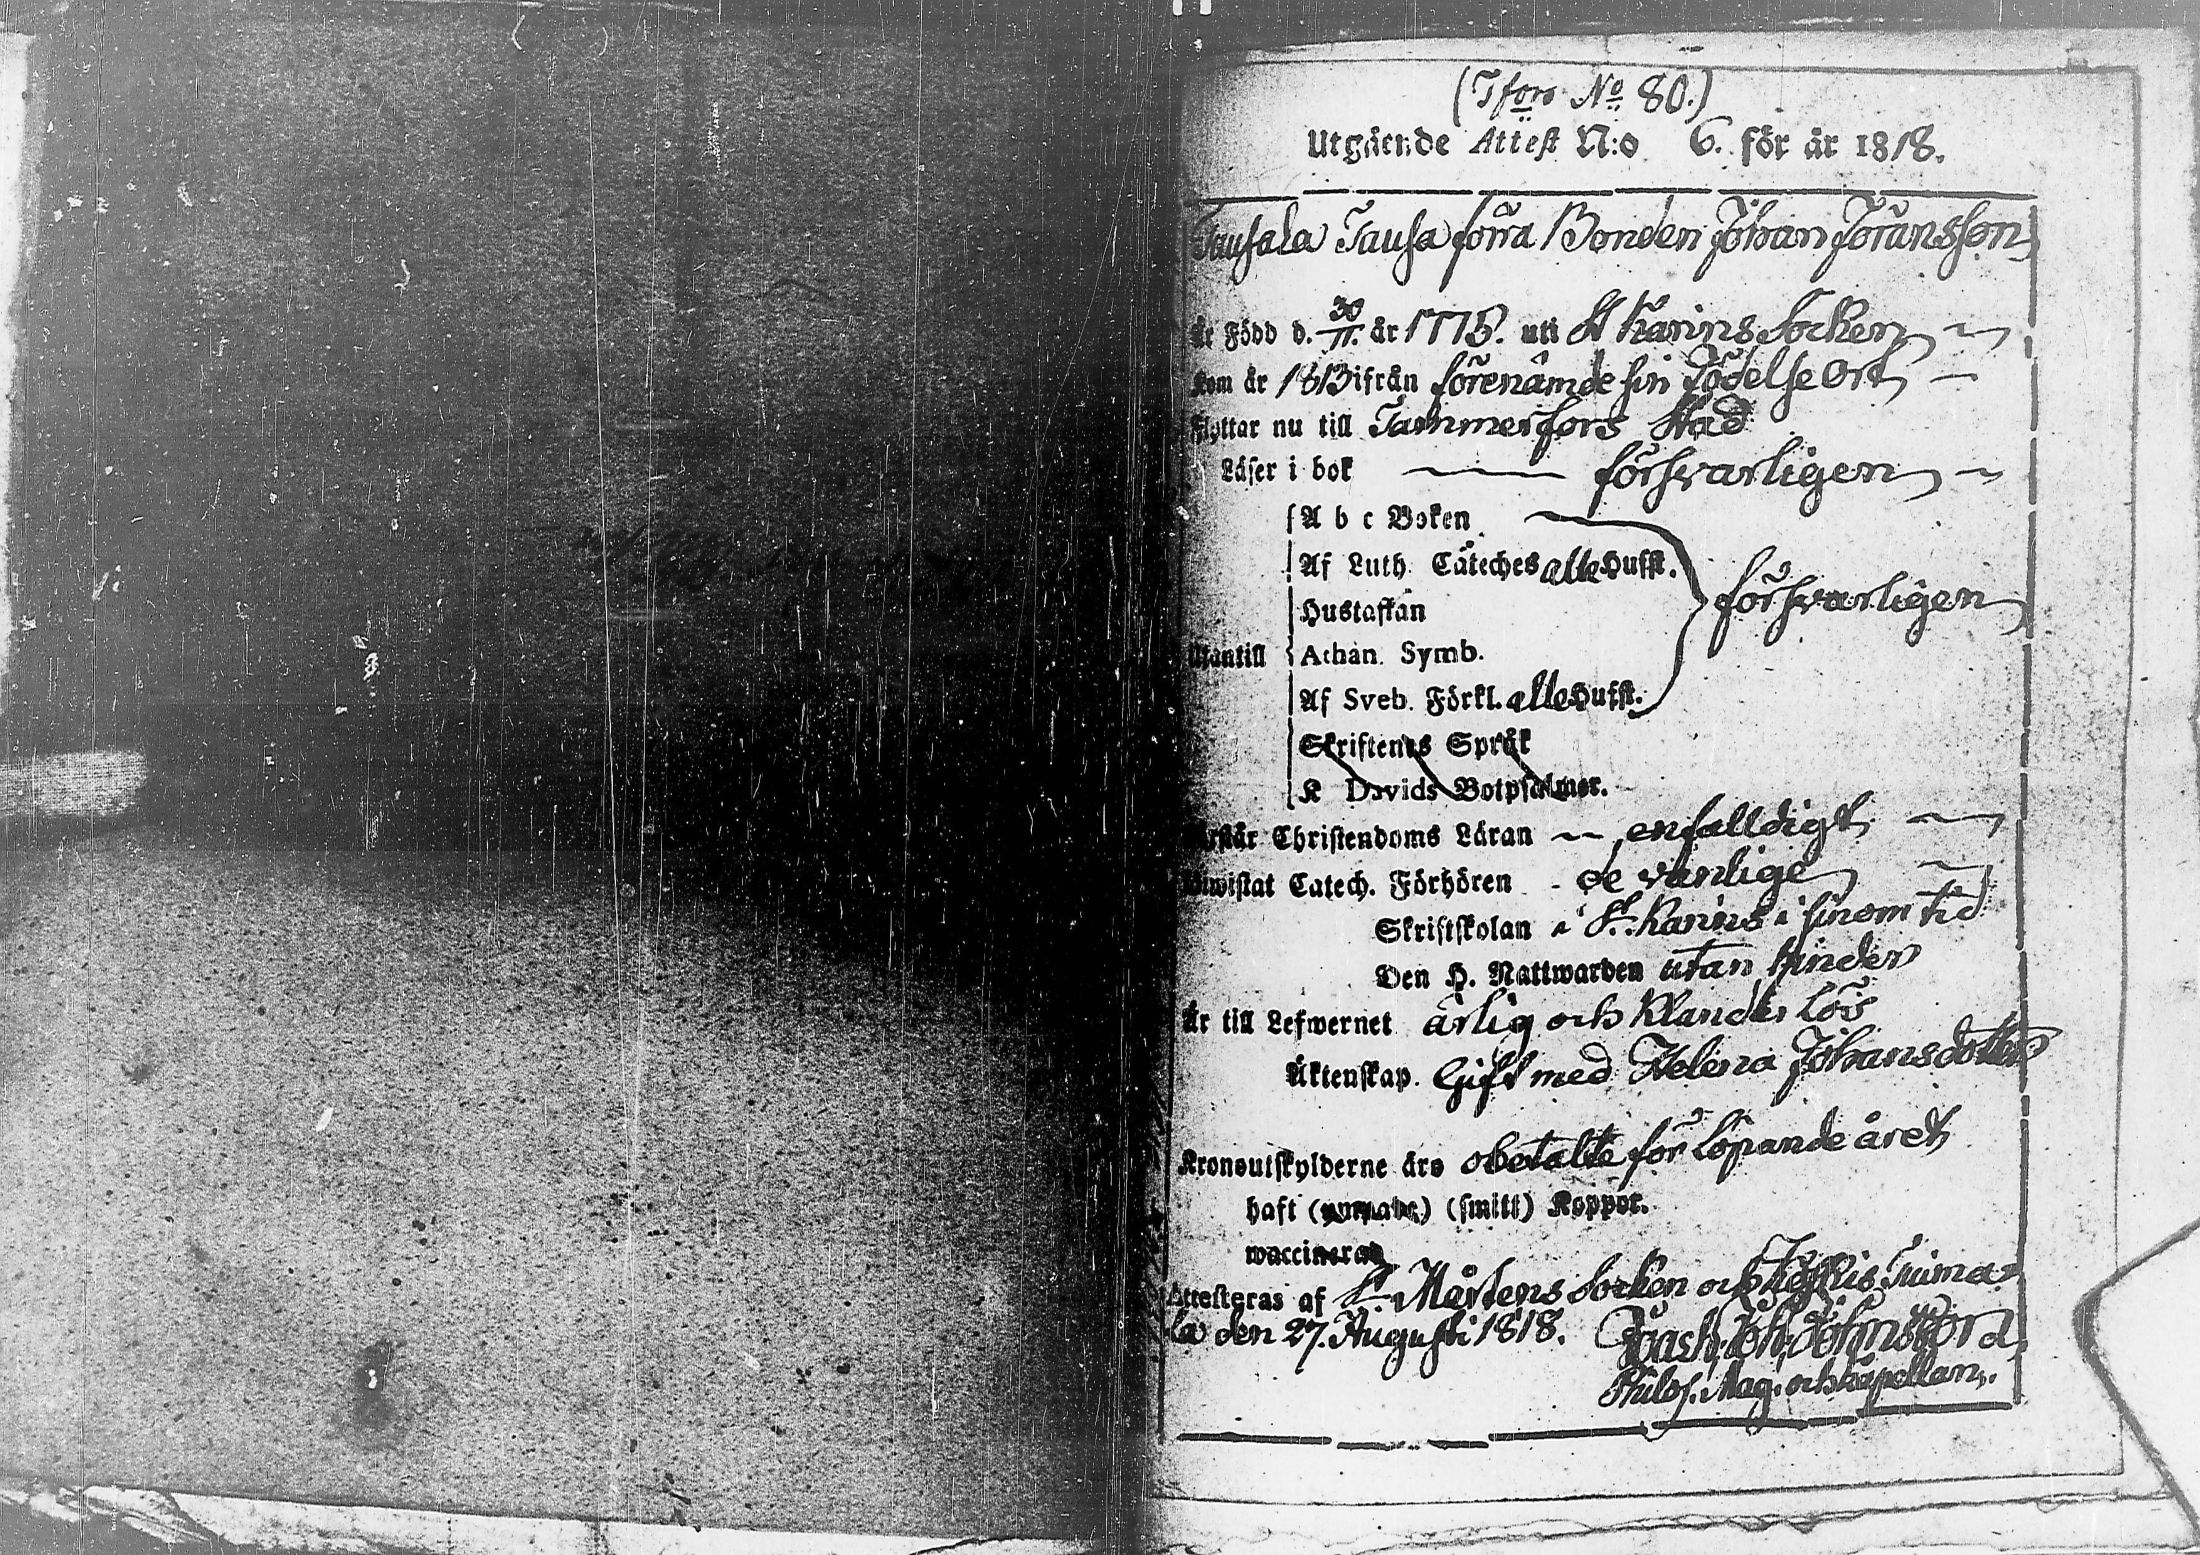 (Tfors No 80.)
Utgående Attest N:o 6. för år 1818.
Tausala Tausa förra Bonden Johan Jöransson
Är Född d. 30/11. år 1775. uti St Karins Socken
Kom år 1813 ifrån förenämde sin Födelse Ort
Flyttar nu till Tammerfors Stad
Läser i bok försvarligen
A b c Boken
Af Luth. Cateches alle Hufst.
Hustaflan försvarligen
Utantill Athan. Symb.
Af Sveb. Förkl. alle Hufst.
Skriftenes Språk
K Davids Botpsalmer.
Förstår Christendoms Läran enfalldigt
Biwistat Catech. Förhören de vanlige
Skriftskolan i St. Karins i sinom tid
Den H. Nattwarden utan hinder
Är till Lefwernet ärlig och klanderlös
Äktenskap. Gift med Helena Johansdotter
Kronoutskylderne äro obetalte för löpande året
haft (smitt) Koppor.
waccinerad
Attesteras af St. Mårtens Socken och
la den 27. Augusti 1818.
Philos. Mag. och kapellan.